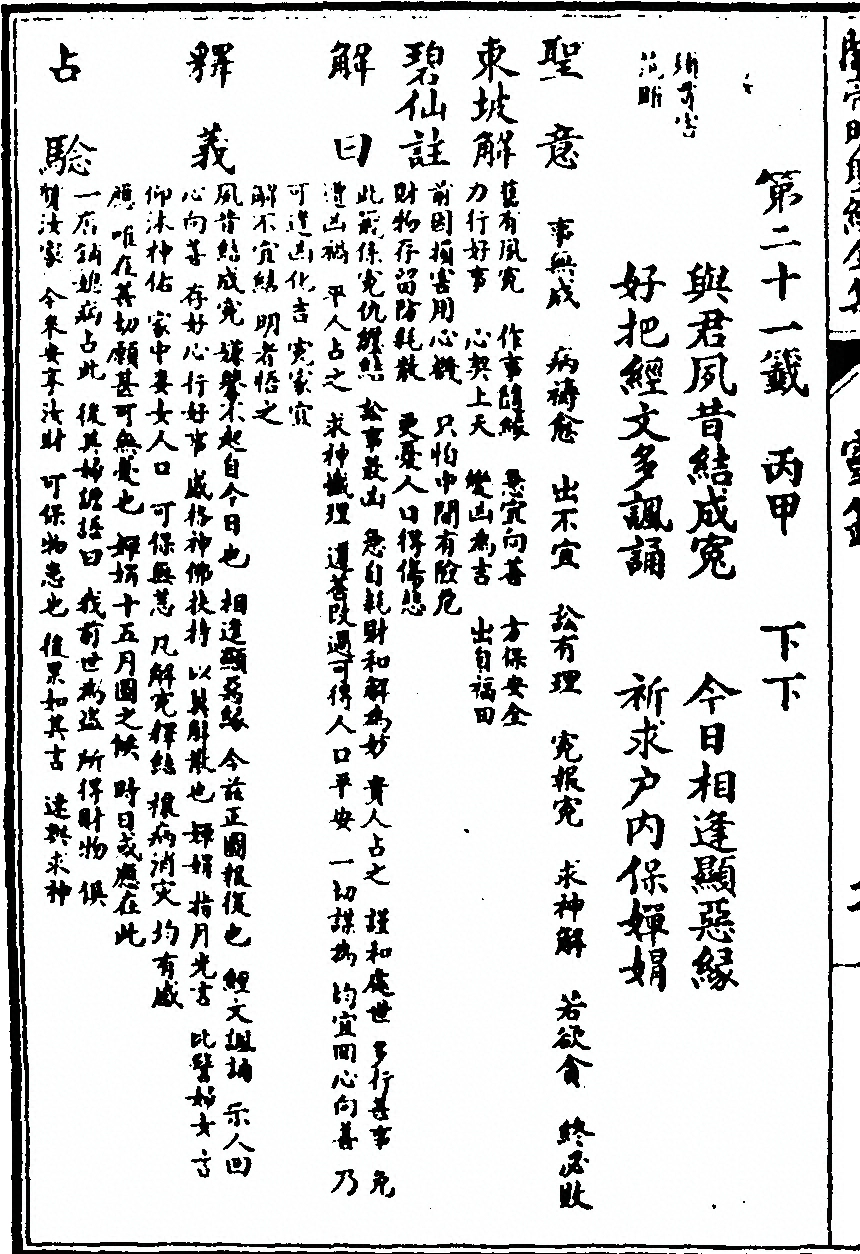 第二十一籤　丙甲　下下
與君夙昔結成寃　今日相逢顯惡緣
好把經文多諷誦　祈求户内保嬋娟
聖意　事無成　病禱愈　出不宜　訟有理　寃報寃　求神解　若欲貪　終必敗
東坡解　舊有夙寃　作事隨緣　急宜向善　方保安全
力行好事　心契上天　變凶為吉　出自福田
碧仙註　前因損害用心機　只怕中間有險危
財物存留防耗散　更憂人口得傷悲
解曰　此籤係寃仇纏結　訟事最凶　急自耗財和解為妙　貴人占之　謹和處世　多行善事　免
遭凶禍　平人占之　求神懺理　遷善改過可得人口平安　一切謀為　均宜回心向善　乃
可逢凶化吉　寃家宜
解不宜結　明者悟之
釋義　夙昔結成寃　嫌釁不起自今日也　相逢顯惡緣　今茲正圖報復也　經文諷誦　示人回
心向善　存好心行好事　感格神佛扶持　以冀解散也　嬋娟　指月光言　比醫婦女言
仰沐神佑　家中妻女人口　可保無恙　凡解寃釋結　禳病消灾　均有感
應　唯在善切願甚可無憂也　嬋娟十五月圓之候　時日或應在此
占驗　一店鋪媳病占此　後其婦譫語曰　我前世為盜　所得財物　俱
汝家　今來安享汝財　可保物患也　後果如其言　速與求神